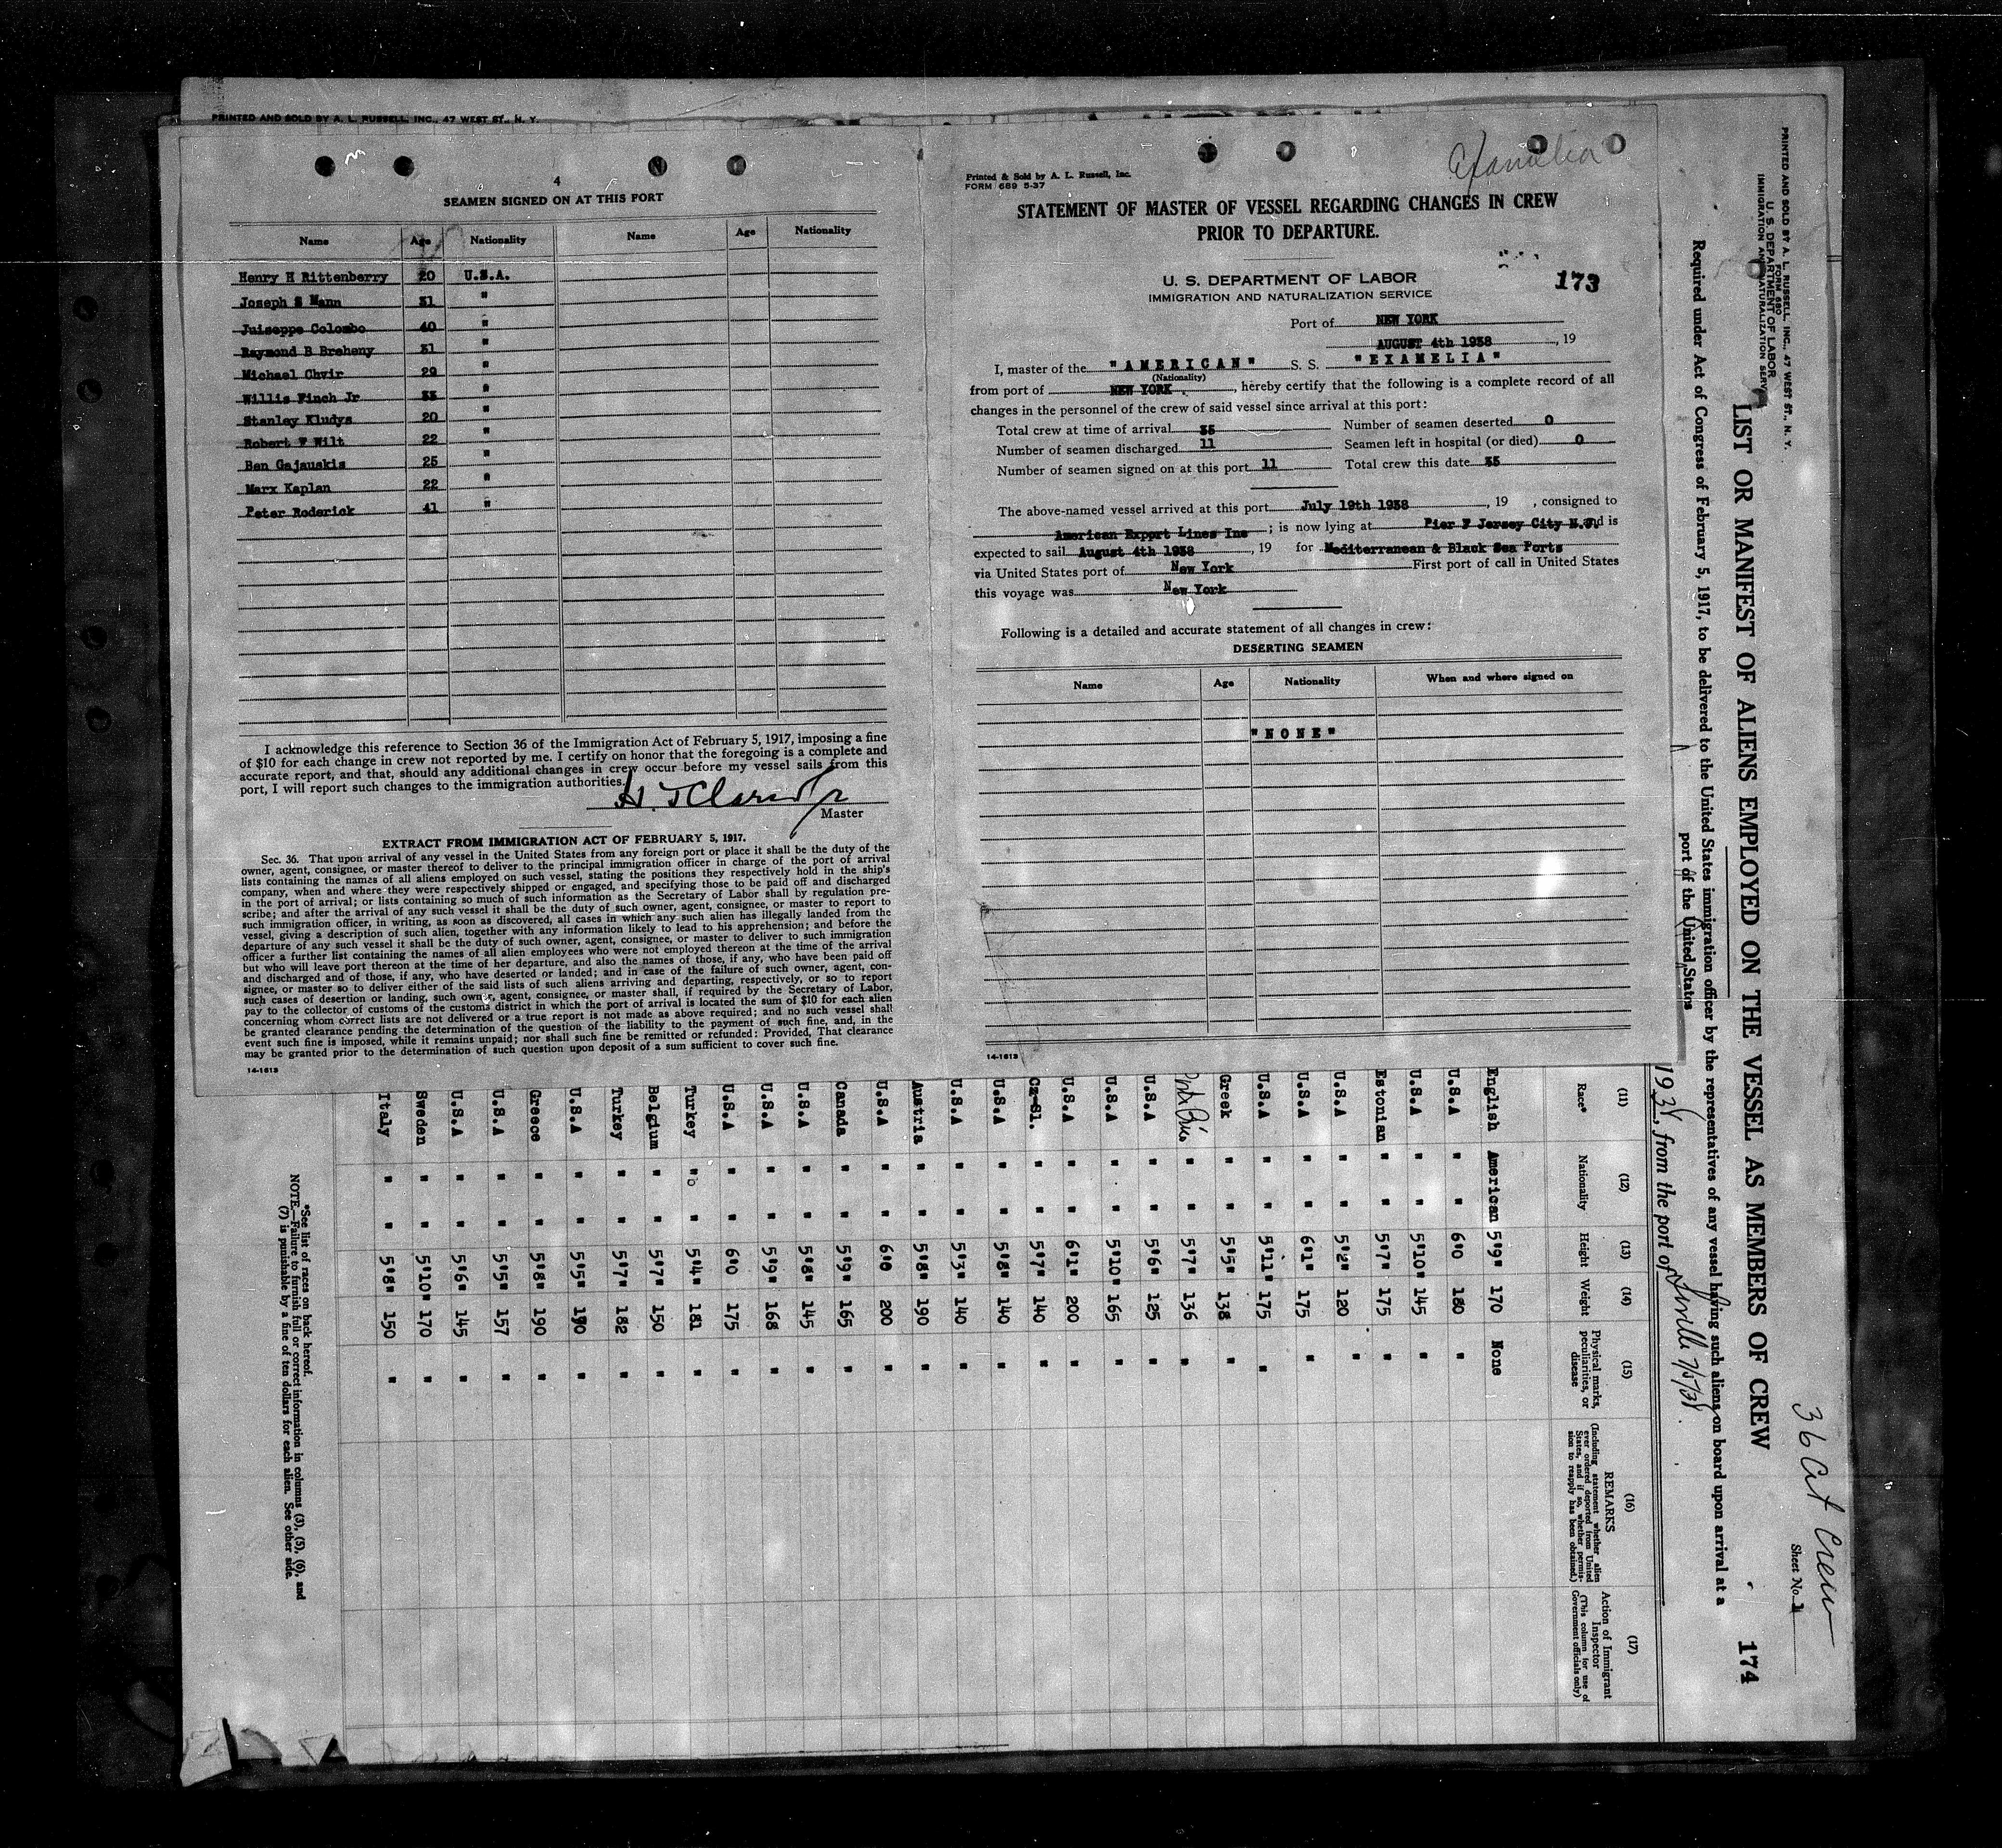 PRINTED AND SOLD BY A. L. RUSSELL, INC., 47 WEST ST., N. Y.
4
SEAMEN SIGNED ON AT THIS PORT
Name Age Nationality Name Age Nationality
Henry H Rittenberry 20 U.S.A.
Joseph S Mann 31 "
Juiseppe Colombo 40 "
Raymond B Breheny 31 "
Michael Chvir 29 "
Willis Finch Jr 33 "
Stanley Kludys 20 "
Robert W Wilt 22 "
Ben Gajauskis 25 "
Marx Kaplan 22 "
Peter Roderick 41 "
I acknowledge this reference to Section 36 of the Immigration Act of February 5, 1917, imposing a fine
of $10 for each change in crew not reported by me. I certify on honor that the foregoing is a complete and
accurate report, and that, should any additional changes in crew occur before my vessel sails from this
port, I will report such changes to the immigration authorities.
Master
EXTRACT FROM IMMIGRATION ACT OF FEBRUARY 5, 1917.
Sec. 36. That upon arrival of any vessel in the United States from any foreign port or place it shall be the duty of the
owner, agent, consignee, or master thereof to deliver to the principal immigration officer in charge of the port of arrival
lists containing the names of all aliens employed on such vessel, stating the positions they respectively hold in the ship's
company, when and where they were respectively shipped or engaged, and specifying those to be paid off and discharged
in the port of arrival; or lists containing so much of such information as the Secretary of Labor shall by regulation pre-
scribe; and after the arrival of any such vessel it shall be the duty of such owner, agent, consignee, or master to report to
such immigration officer, in writing, as soon as discovered, all cases in which any such alien has illegally landed from the
vessel, giving a description of such alien, together with any information likely to lead to his apprehension; and before the
departure of any such vessel it shall be the duty of such owner, agent, consignee, or master to deliver to such immigration
officer a further list containing the names of all alien employees who were not employed thereon at the time of the arrival
but who will leave port thereon at the time of her departure, and also the names of those, if any, who have been paid off
and discharged and of those, if any, who have deserted or landed; and in case of the failure of such owner, agent, con-
signee, or master so to deliver either of the said lists of such aliens arriving and departing, respectively, or so to report
such cases of desertion or landing, such owner, agent, consignee, or master shall, if required by the Secretary of Labor,
pay to the collector of customs of the customs district in which the port of arrival is located the sum of $10 for each alien
concerning whom correct lists are not delivered or a true report is not made as above required; and no such vessel shall
be granted clearance pending the determination of the question of the liability to the payment of such fine, and, in the
event such fine is imposed, while it remains unpaid; nor shall such fine be remitted or refunded: Provided, That clearance
may be granted prior to the determination of such question upon deposit of a sum sufficient to cover such fine.
14-1613
Examelia
Printed & Sold by A. L. Russell, Inc.
FORM 689 5-37
STATEMENT OF MASTER OF VESSEL REGARDING CHANGES IN CREW
PRIOR TO DEPARTURE.
U. S. DEPARTMENT OF LABOR
173
IMMIGRATION AND NATURALIZATION SERVICE
Port of NEW YORK
AUGUST 4th 1938 , 19
I, master of the "AMERICAN" S. S. "EXAMELIA"
(Nationality)
from port of NEW YORK , hereby certify that the following is a complete record of all
changes in the personnel of the crew of said vessel since arrival at this port:
Total crew at time of arrival 35 Number of seamen deserted 0
Number of seamen discharged 11 Seamen left in hospital (or died) 0
Number of seamen signed on at this port 11 Total crew this date 35
The above-named vessel arrived at this port July 19th 1938 , 19 , consigned to
American Export Lines Inc ; is now lying at Pier F Jersey City N.J. and is
expected to sail August 4th 1938 , 19 for Mediterranean & Black Sea Ports
via United States port of New York First port of call in United States
this voyage was New York
Following is a detailed and accurate statement of all changes in crew:
DESERTING SEAMEN
Name Age Nationality When and where signed on
"NONE"
14-1613
PRINTED AND SOLD BY A. L. RUSSELL, INC., 47 WEST ST., N. Y.
FORM 680
U. S. DEPARTMENT OF LABOR
IMMIGRATION AND NATURALIZATION SERVICE
36 Crew
Sheet No. 1
LIST OR MANIFEST OF ALIENS EMPLOYED ON THE VESSEL AS MEMBERS OF CREW
174
Required under Act of Congress of February 5, 1917, to be delivered to the United States immigration officer by the representatives of any vessel having such aliens on board upon arrival at a
port of the United States
1938, from the port of Seville 7/5/38.
(11) (12) (13) (14) (15) (16) (17)
Race* Nationality Height Weight Physical marks, peculiarities, or disease REMARKS (Including statement whether alien ever ordered deported from United States, and if so, whether permission to reapply has been obtained.) Action of Immigrant Inspector (This column for use of Government officials only)
English American 5'9" 170 None
U.S.A " " 6'0 180 "
U.S.A " " 5'10" 145 "
Estonian " " 5'7" 175 "
U.S.A " " 5'2" 120 "
U.S.A " " 6'1" 175 "
U.S.A " " 5'11" 175 "
Greek " " 5'5" 138 "
" " 5'7" 136 "
U.S.A " " 5'6" 125 "
U.S.A " " 5'10" 165 "
U.S.A " " 6'1" 200 "
Cz-Sl. " " 5'7" 140 "
U.S.A " " 5'8" 140 "
U.S.A " " 5'3" 140 "
Austria " " 5'8" 190 "
U.S.A " " 6'0 200 "
Canada " " 5'9" 165 "
U.S.A " " 5'8" 145 "
U.S.A " " 5'9" 168 "
U.S.A " " 6'0 175 "
Turkey " " 5'4" 181 "
Belgium " " 5'7" 150 "
Turkey " " 5'7" 182 "
U.S.A " " 5'5" 190 "
Greece " " 5'8" 190 "
U.S.A " " 5'5" 157 "
U.S.A " " 5'6" 145 "
Sweden " " 5'10" 170 "
Italy " " 5'8" 150 "
*See list of races on back hereof.
NOTE.—Failure to furnish full or correct information in columns (3), (5), (6), and
(7) is punishable by a fine of ten dollars for each alien. See other side.